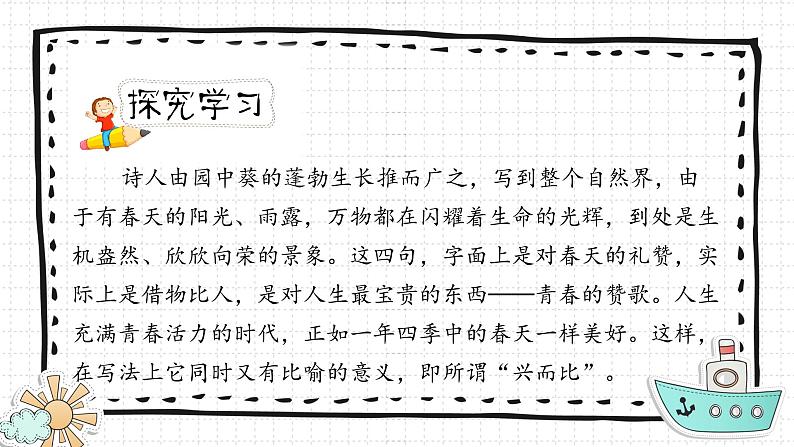 探究学习
诗人由园中葵的蓬勃生长推而广之，写到整个自然界，由
于有春天的阳光、雨露，万物都在闪耀着生命的光辉，到处是生
机盎然、欣欣向荣的景象。这四句，字面上是对春天的礼赞，实
际上是借物比人，是对人生最宝贵的东西——青春的赞歌。人生
充满青春活力的时代，正如一年四季中的春天一样美好。这样，
在写法上它同时又有比喻的意义，即所谓“兴而比”。